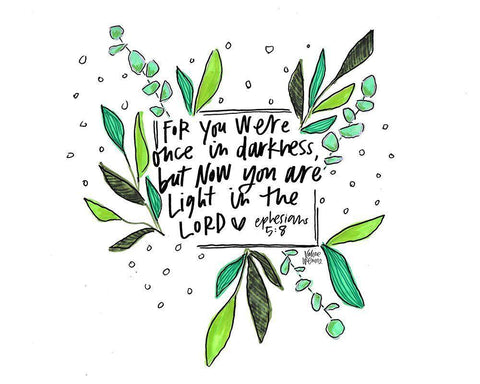 FOR you were
once in darkness,
but NOW you are
Light in the
LORD ephesians
5:8